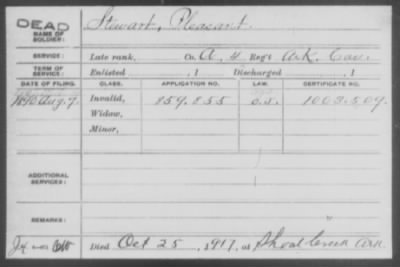 DEAD
NAME OF SOLDIER: Stewart, Pleasant.
SERVICE: Late rank, Co. A, 4 Reg't Ark. Cav.
TERM OF SERVICE: Enlisted , 1 Discharged , 1
DATE OF FILING. CLASS. APPLICATION NO. LAW. CERTIFICATE NO.
1890 Aug. 7. Invalid, 859.855 1003.509.
Widow,
Minor,
ADDITIONAL SERVICES:
REMARKS:
Died Oct 25, 1917, at Shoal Creek Ark.